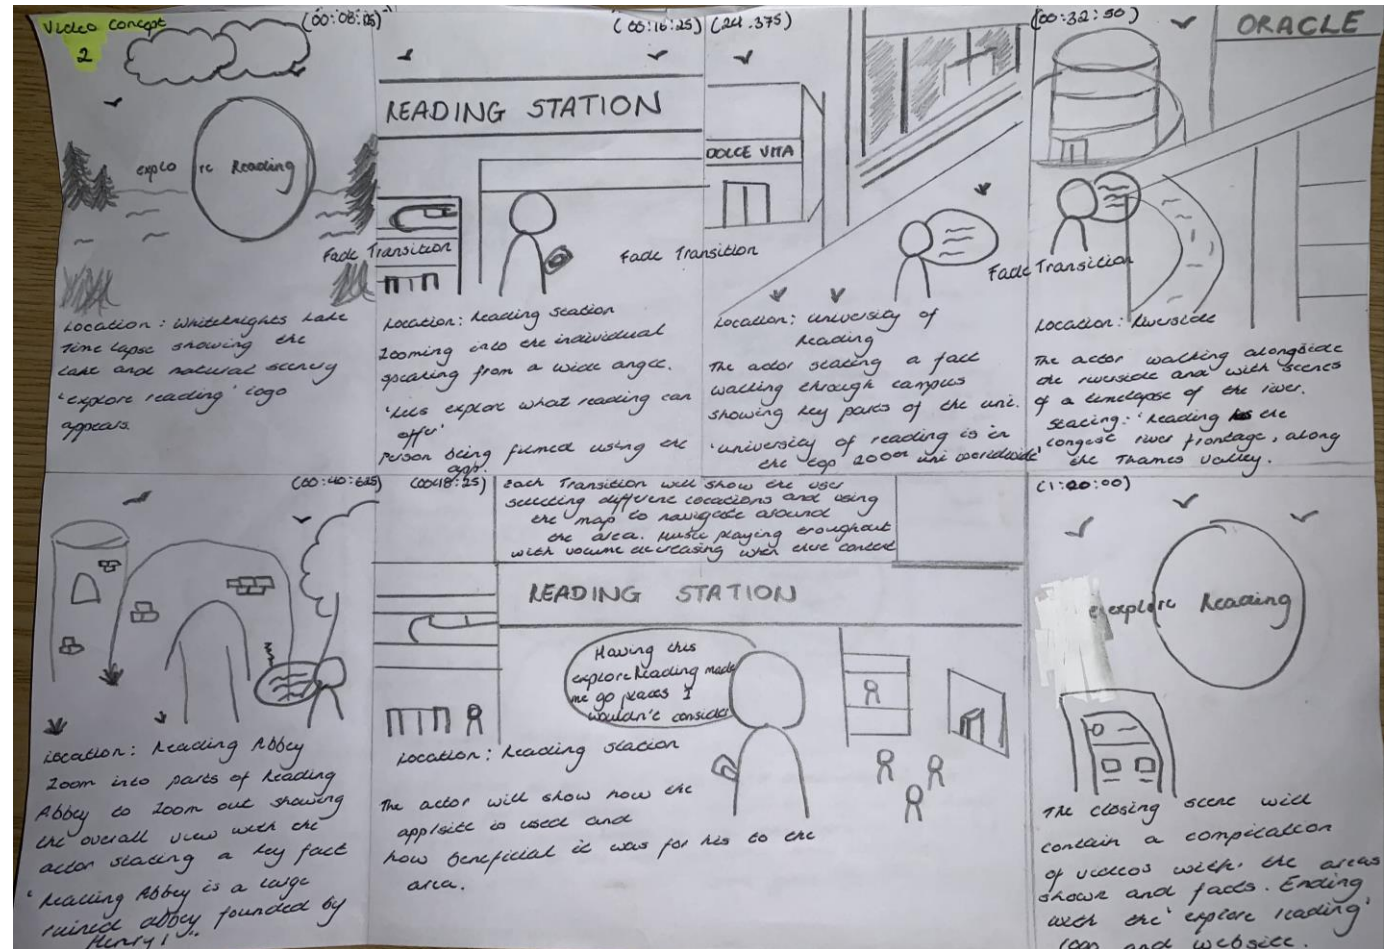 Video Concept
2
(00:08:15)
explore Reading
Fade Transition
Location: Whiteknights Lake
Time lapse showing the
lake and natural scenery
'explore reading' logo
appears.
(00:16:25)
READING STATION
Fade Transition
Location: Reading Station
Zooming into the individual
speaking from a wide angle.
'Lets explore what reading can
offer'
Person being filmed using the
app.
(24.375)
DOLCE VITA
Fade Transition
Location: University of
Reading
The actor stating a fact
walking through campus
showing key parts of the uni.
'University of reading is in
the top 200th uni worldwide'
(00:32:50)
ORACLE
Location: Riverside
The actor walking alongside
the riverside and with scenes
of a timelapse of the river.
Stating: 'Reading the
longest river frontage, along
the Thames Valley.
(00:40:625)
Location: Reading Abbey
Zoom into parts of Reading
Abbey to zoom out showing
the overall view with the
actor stating a key fact
'Reading Abbey is a large
ruined abbey founded by
Henry I"
(00:48:25)
Each Transition will show the user
selecting different locations and using
the map to navigate around
the area. Music playing throughout
with volume decreasing with the content
READING STATION
Having this
explore Reading made
me go places I
wouldn't consider
Location: Reading Station
The actor will show how the
app/site is used and
how beneficial it was for his to the
area.
(1:20:00)
explore Reading
The closing scene will
contain a compilation
of videos with the areas
shown and facts. Ending
with the 'explore reading'
logo and website